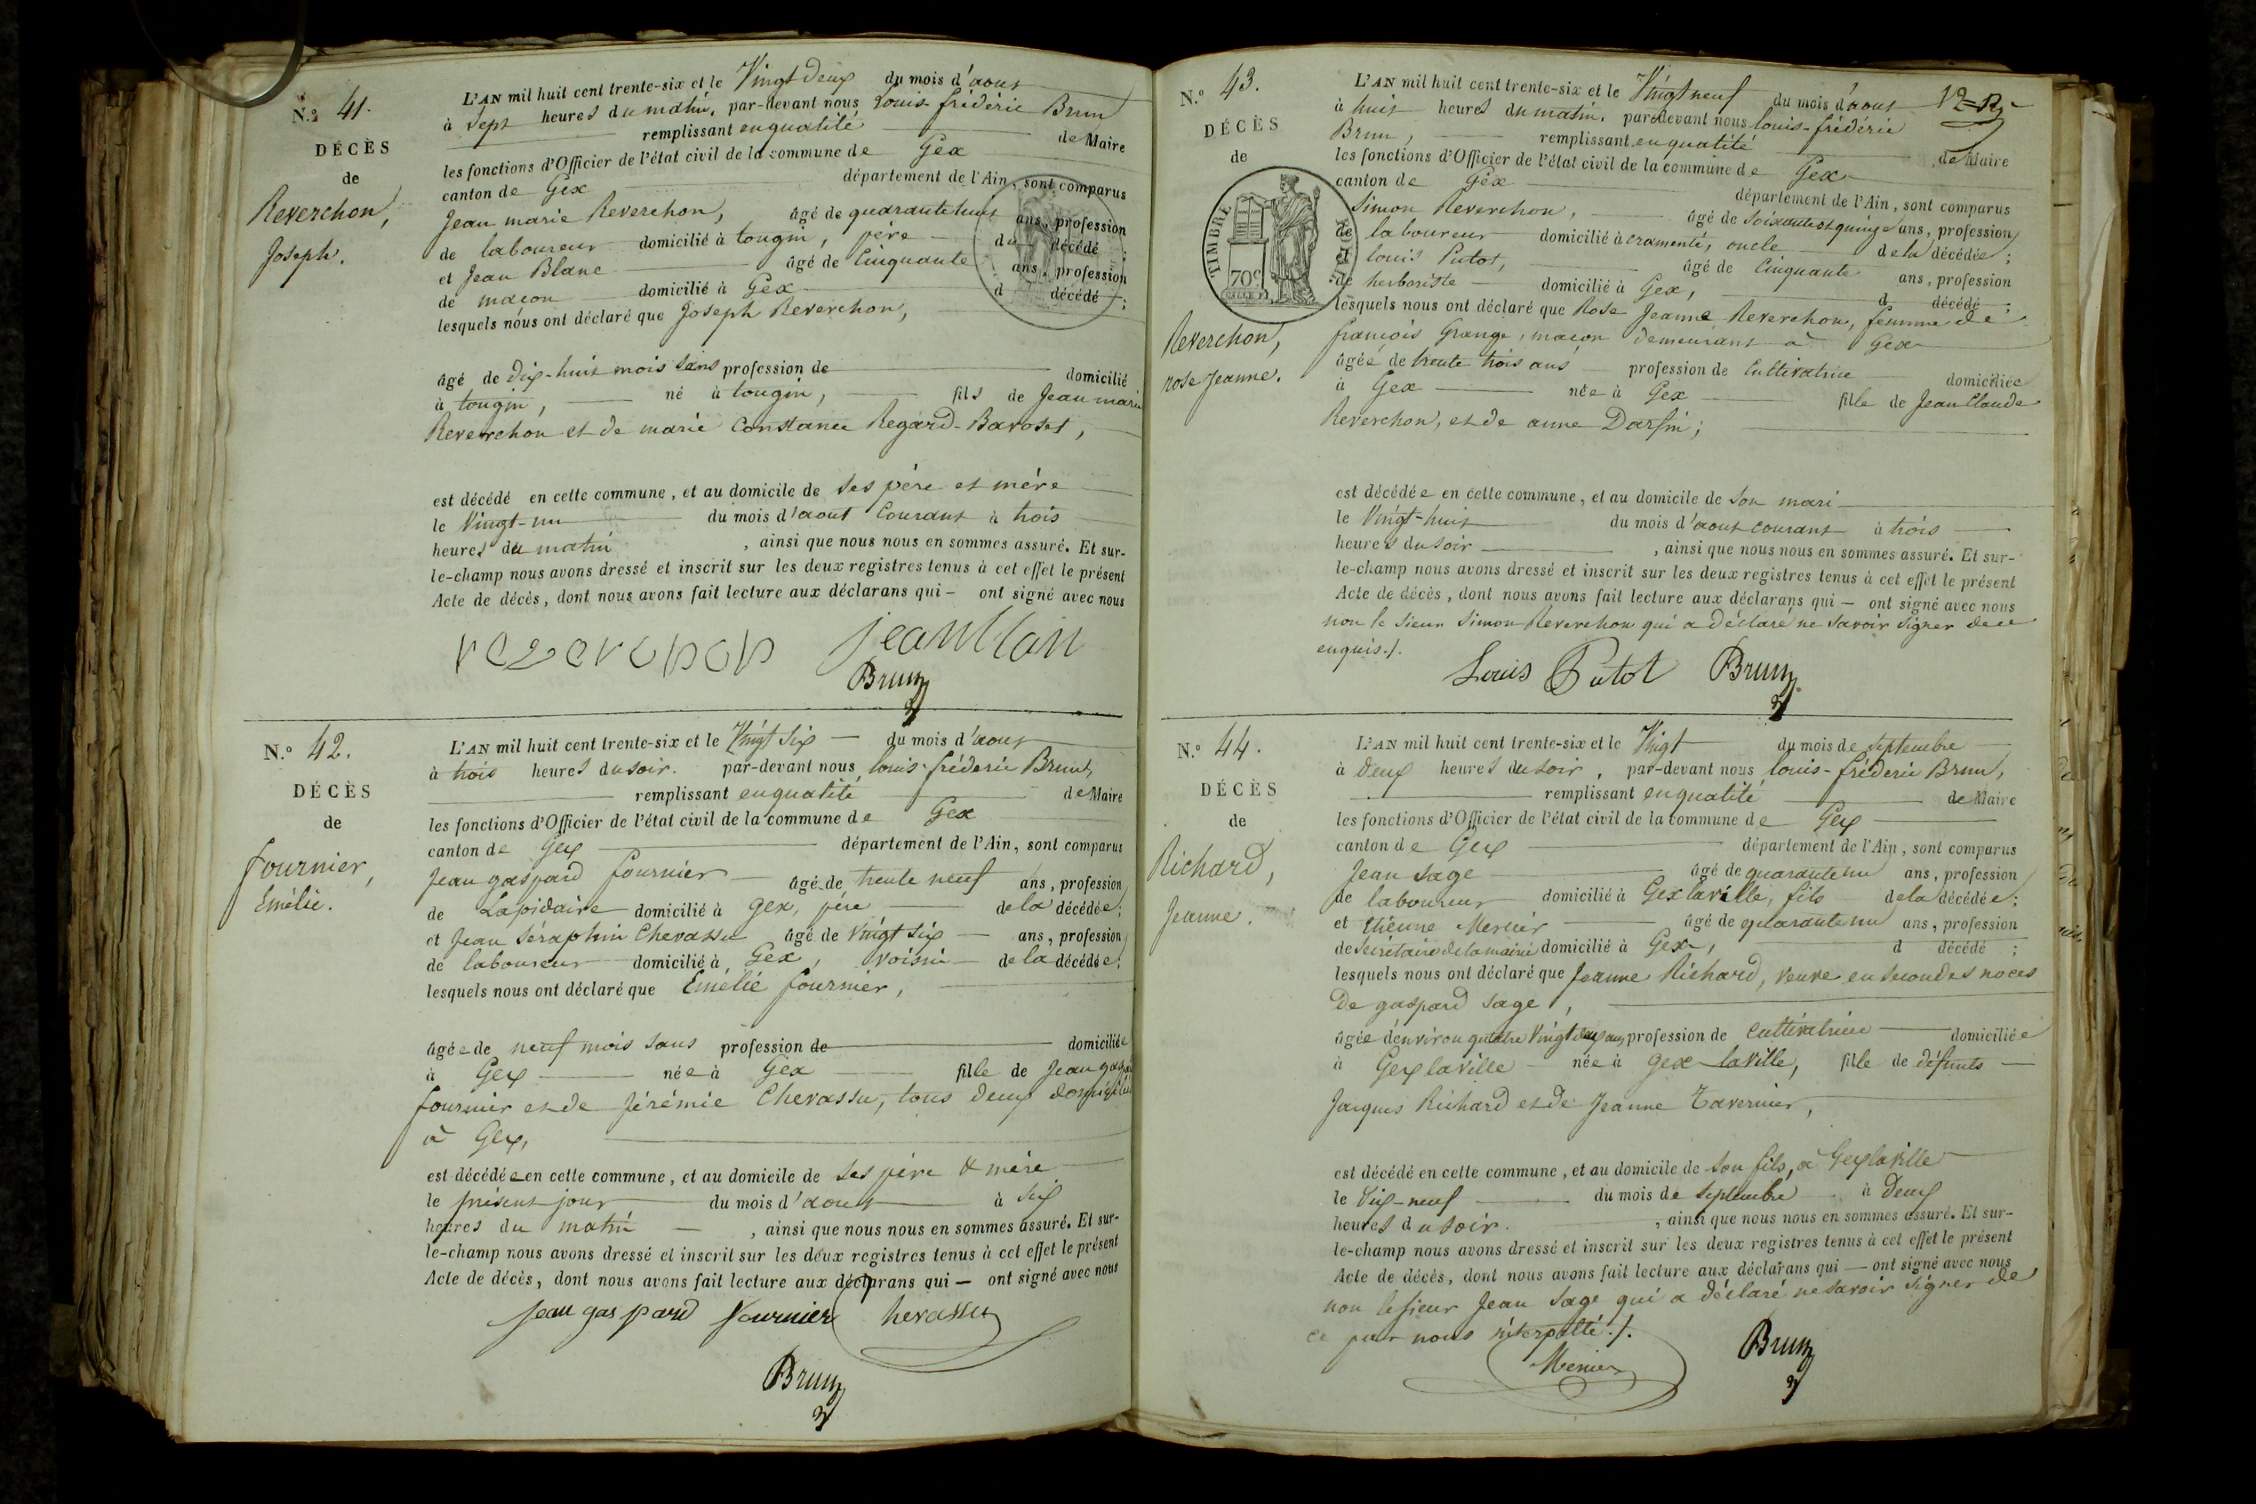 N.º 41.
DÉCÈS
de
Reverchon,
Joseph.
L'AN mil huit cent trente-six et le Vingt deux du mois d'aout
à Sept heures du matin, par-devant nous Louis frédéric Brun
remplissant en qualité de Maire
les fonctions d'Officier de l'état civil de la commune de Gex
canton de Gex département de l'Ain, sont comparus
Jean marie Reverchon, âgé de quarante huit ans, profession
de laboureur domicilié à tougin, père du décédé ;
et Jean Blanc âgé de Cinquante ans, profession
de maçon domicilié à Gex d décédé ;
lesquels nous ont déclaré que Joseph Reverchon,
âgé de dix-huit mois sans profession de domicilié
à tougin, né à tougin, fils de Jean marie
Reverchon et de marie Constance Regard-Baroset,
est décédé en cette commune, et au domicile de ses père et mère
le Vingt-un du mois d'aout Courant à trois
heures du matin, ainsi que nous nous en sommes assuré. Et sur-
le-champ nous avons dressé et inscrit sur les deux registres tenus à cet effet le présent
Acte de décès, dont nous avons fait lecture aux déclarans qui — ont signé avec nous
Jean blan
Brun
N.º 42.
DÉCÈS
de
fournier,
Emélie.
L'AN mil huit cent trente-six et le Vingt six — du mois d'aout
à trois heures du soir. par-devant nous louis-fréderic Brun,
remplissant en qualité de Maire
les fonctions d'Officier de l'état civil de la commune de Gex
canton de Gex département de l'Ain, sont comparus
Jean gaspard fournier — âgé de trente neuf ans, profession
de Lapidaire domicilié à gex, père de la décédée ;
et Jean Séraphin Chevassu âgé de Vingt six — ans, profession
de laboureur domicilié à Gex, voisin de la décédée ;
lesquels nous ont déclaré que Emélie fournier,
âgée de neuf mois sans profession de domiciliée
à Gex née à Gex fille de Jean gaspard
fournier et de Jérémie Chevassu, tous deux domiciliés
à Gex,
est décédée en cette commune, et au domicile de ses père & mère
le présent jour du mois d'aout à six
heures du matin — , ainsi que nous nous en sommes assuré. Et sur-
le-champ nous avons dressé et inscrit sur les deux registres tenus à cet effet le présent
Acte de décès, dont nous avons fait lecture aux déclarans qui — ont signé avec nous
Jean gaspard fournier Chevassu
Brun
N.º 43.
DÉCÈS
de
TIMBRE ROYAL
70c
Reverchon,
rose Jeanne.
L'AN mil huit cent trente-six et le Vingt neuf du mois d'aout
à huit heures du matin, par-devant nous louis-frédéric
Brun, remplissant en qualité de Maire
les fonctions d'Officier de l'état civil de la commune de Gex
canton de Gex département de l'Ain, sont comparus
Simon Reverchon, âgé de soixante et quinze ans, profession
de laboureur domicilié à cramenté, oncle de la décédée ;
et louis Putot, âgé de Cinquante ans, profession
de herboriste — domicilié à Gex, d décédé ;
lesquels nous ont déclaré que Rose Jeanne Reverchon, femme de
françois Grange, maçon demeurant à Gex
âgée de trente trois ans profession de Cultivatrice domiciliée
à Gex née à Gex fille de Jean Claude
Reverchon, et de anne Darfin ;
est décédée en cette commune, et au domicile de son mari
le Vingt-huit du mois d'aout courant à trois
heures du soir , ainsi que nous nous en sommes assuré. Et sur-
le-champ nous avons dressé et inscrit sur les deux registres tenus à cet effet le présent
Acte de décès, dont nous avons fait lecture aux déclarans qui — ont signé avec nous
non le Sieur Simon Reverchon qui a déclaré ne savoir signer de ce
enquis./.
Louis Putot Brun
N.º 44.
DÉCÈS
de
Richard,
Jeanne.
L'AN mil huit cent trente-six et le Vingt du mois de septembre
à Deux heures du soir, par-devant nous louis-fréderic Brun,
remplissant en qualité de Maire
les fonctions d'Officier de l'état civil de la commune de Gex
canton de Gex département de l'Ain, sont comparus
Jean Sage âgé de quarante un ans, profession
de laboureur domicilié à Gex laville, fils de la décédée ;
et Etienne Mercier âgé de quarante un ans, profession
de Secrétaire de la mairie domicilié à Gex, d décédé ;
lesquels nous ont déclaré que Jeanne Richard, veuve en secondes noces
De gaspard Sage,
âgée d'environ quatre Vingt deux ans profession de Cultivatrice domiciliée
à Gex laville — née à Gex laville, fille de défunts —
Jacques Richard et de Jeanne Tavernier,
est décédé en cette commune, et au domicile de son fils, à Gex laville
le Dix-neuf du mois de septembre à Deux
heures du soir. , ainsi que nous nous en sommes assuré. Et sur-
le-champ nous avons dressé et inscrit sur les deux registres tenus à cet effet le présent
Acte de décès, dont nous avons fait lecture aux déclarans qui — ont signé avec nous
non le Sieur Jean Sage qui a déclaré ne savoir signer de
ce par nous interpellé./.
Mercier Brun